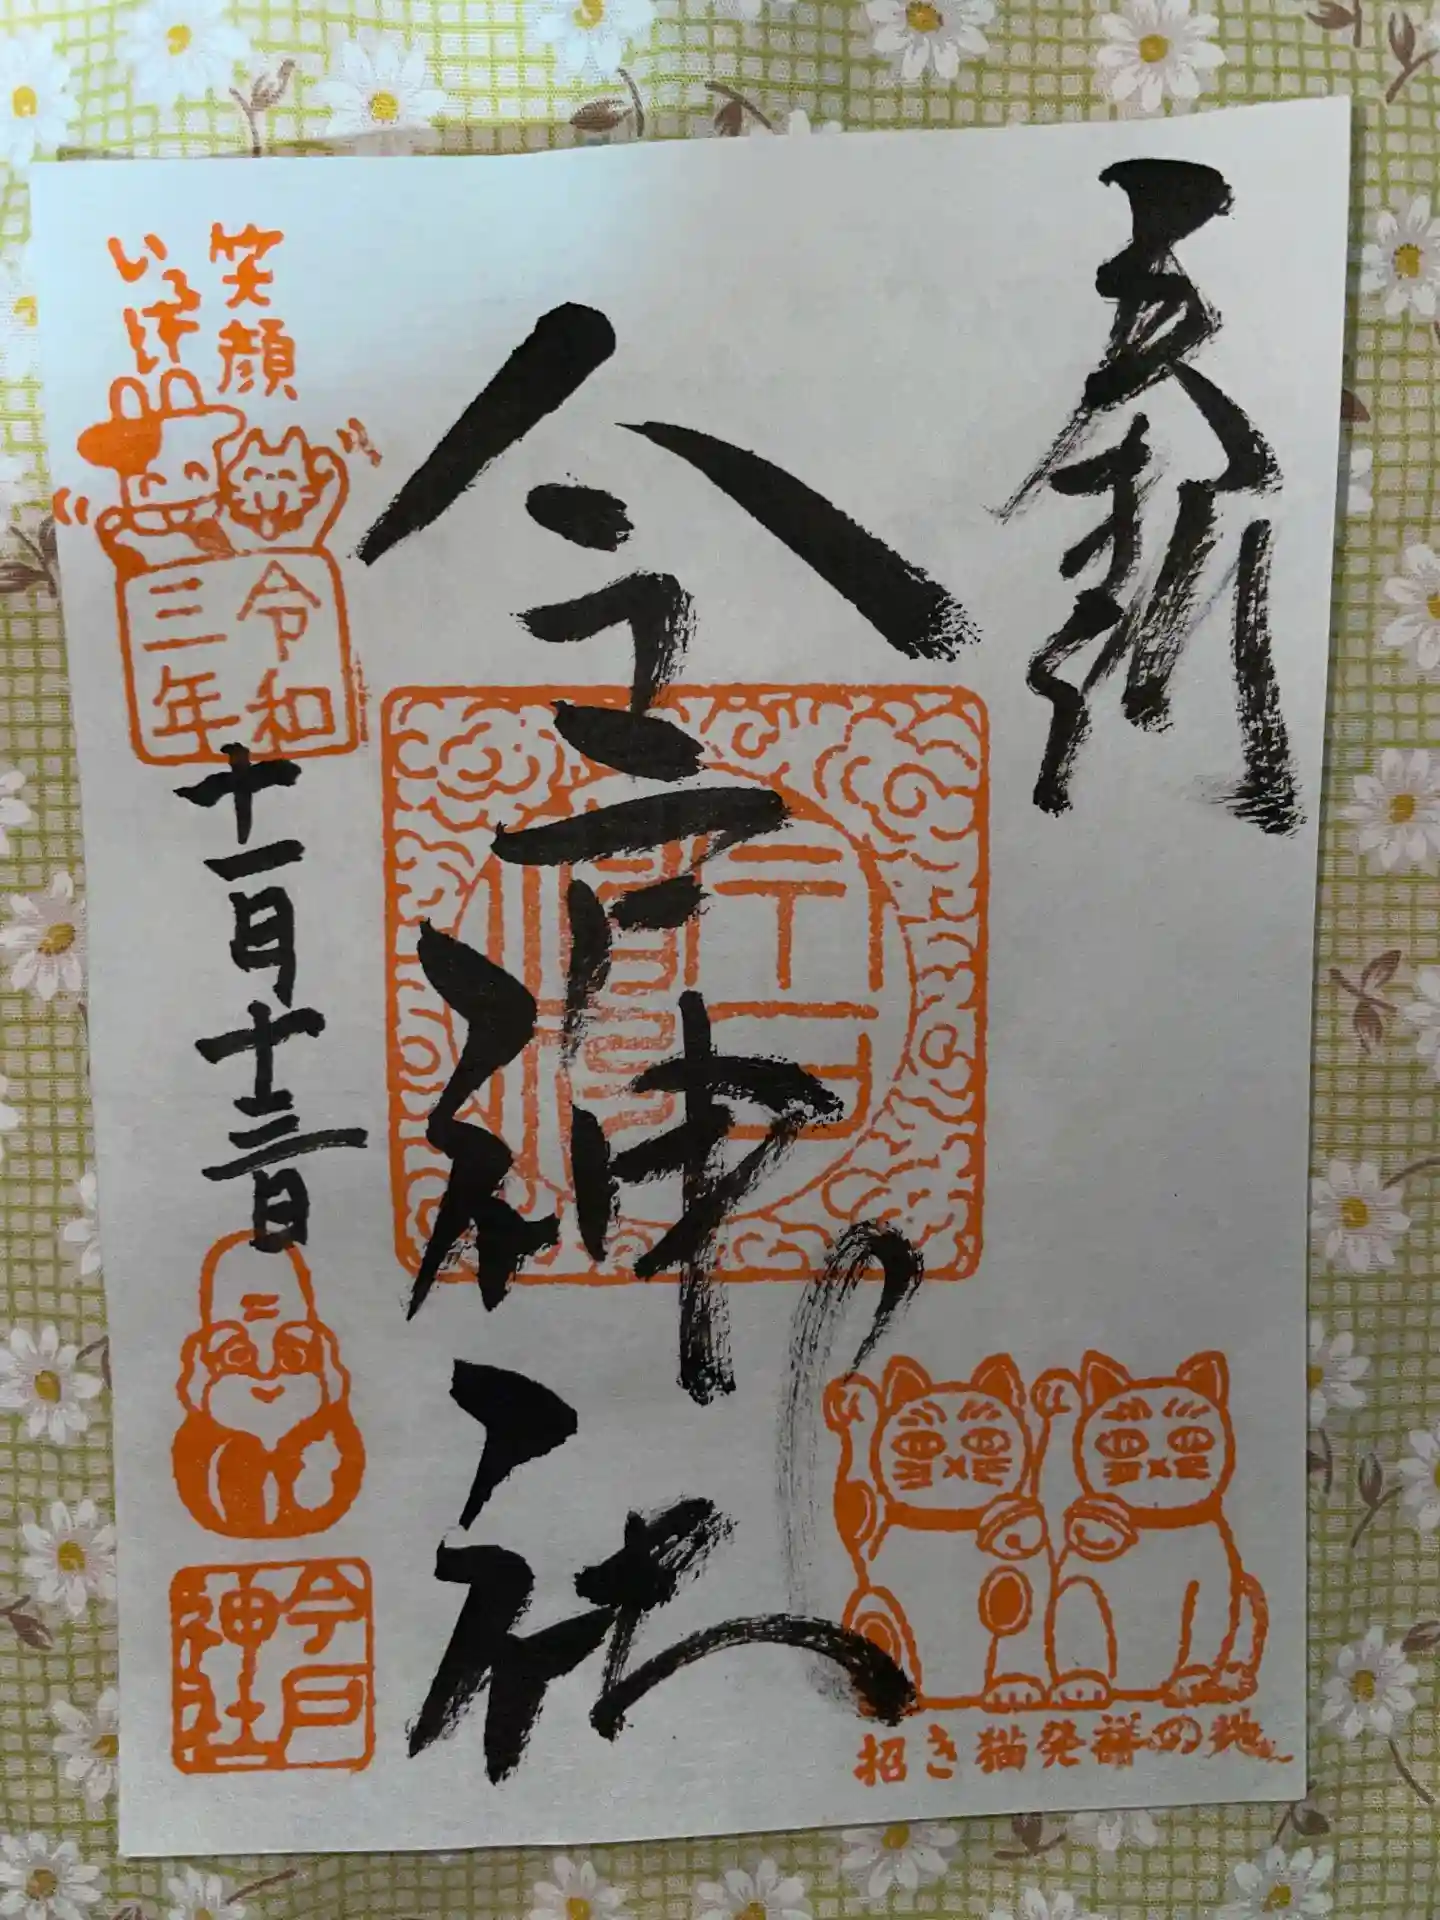 奉拝
今戸神社
笑顔
いろは
令和
三年
十一月十三日
今戸
神社
招き猫発祥の地